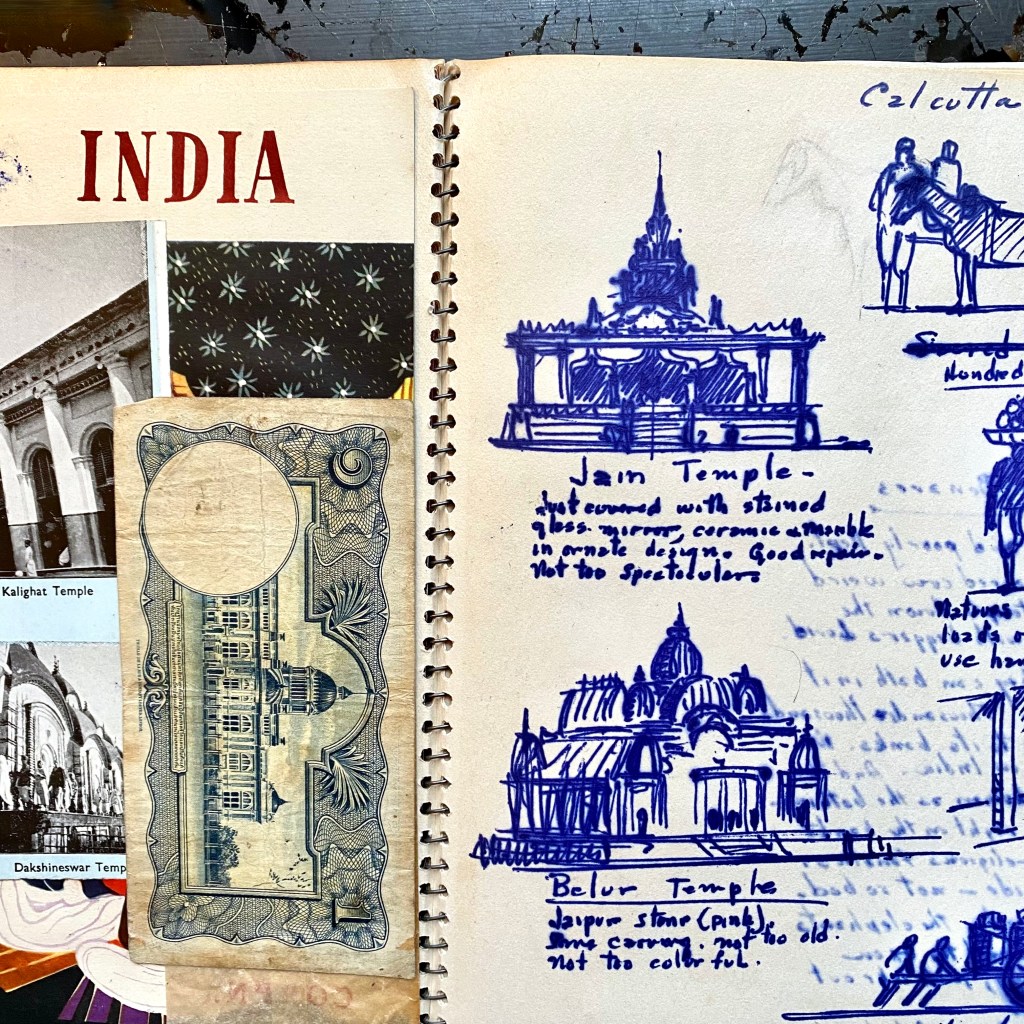 INDIA
Kalighat Temple
Dakshineswar Temp
Calcutta
Jain Temple -
Just covered with stained
glass. mirror, ceramic & marble
in ornate design. Good repair.
Not too spectacular.
Hundred
Natives
loads
use
Belur Temple
Jaipur stone (pink).
Some carving. not too old.
Not too colorful.